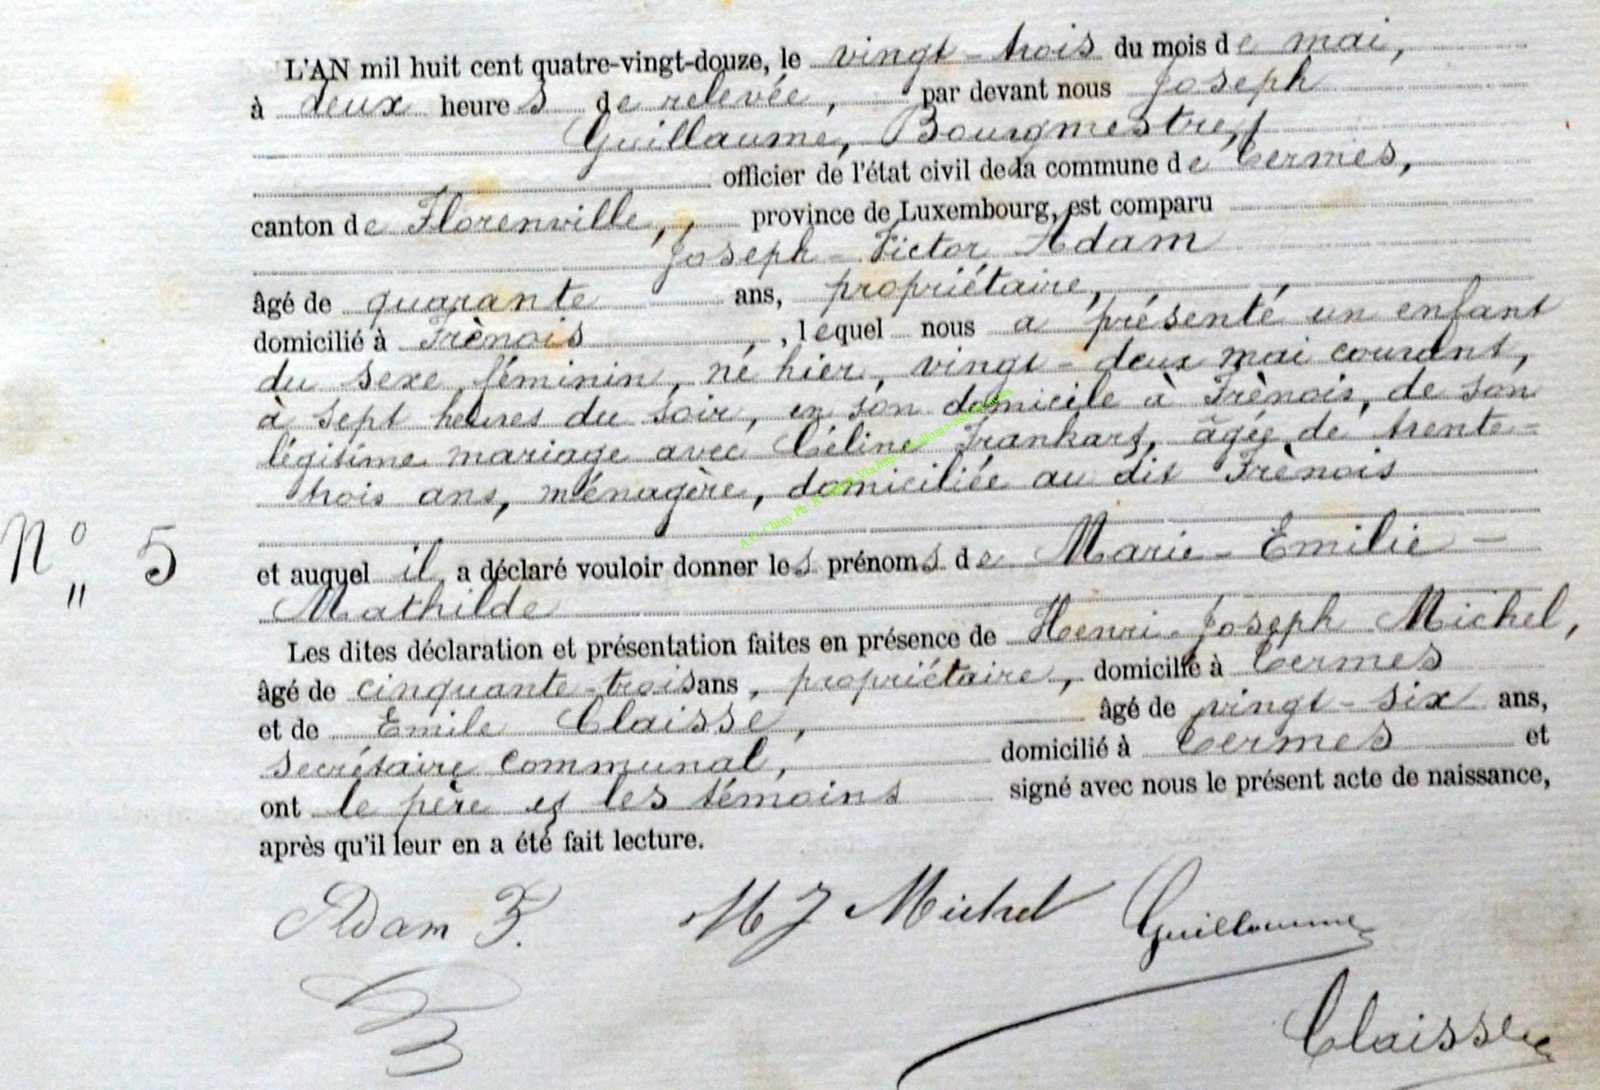 L'AN mil huit cent quatre-vingt-douze, le vingt-trois du mois de mai,
à deux heures de relevée, par devant nous Joseph
Guillaume, Bourgmestre,
officier de l'état civil de la commune de Termes,
canton de Florenville, province de Luxembourg, est comparu
Joseph-Victor Adam
âgé de quarante ans, propriétaire,
domicilié à Frènois, lequel nous a présenté un enfant
du sexe féminin, né hier, vingt-deux mai courant,
à sept heures du soir, en son domicile à Frènois, de son
légitime mariage avec Céline Frankart, âgée de trente-
trois ans, ménagère, domiciliée au dit Frènois
N° 5
et auquel il a déclaré vouloir donner les prénoms de Marie-Emilie-
Mathilde
Les dites déclaration et présentation faites en présence de Henri-Joseph Michel,
âgé de cinquante-trois ans, propriétaire, domicilié à Termes
et de Emile Claisse, âgé de vingt-six ans,
secrétaire communal, domicilié à Termes et
ont le père et les témoins signé avec nous le présent acte de naissance,
après qu'il leur en a été fait lecture.
Adam HJ Michel Guillaume
Claisse